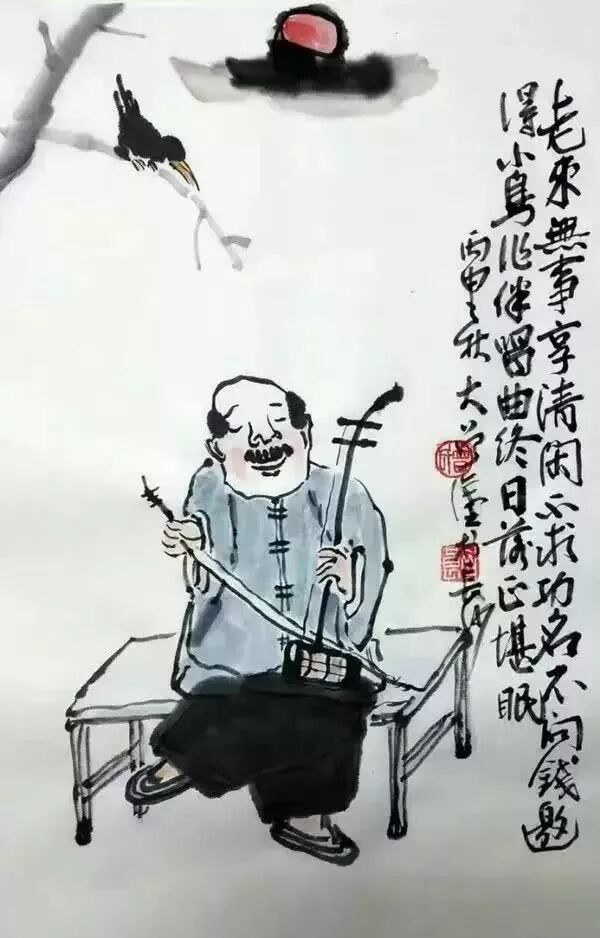 老來無事享清闲不求功名不问錢邀
得小鳥作伴唱曲终日落正堪眠
丙申之秋大